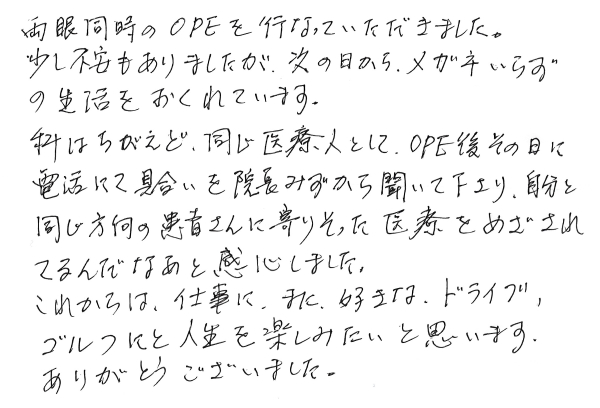 両眼同時のOPEを行なっていただきました。
少し不安もありましたが、次の日から、メガネいらず
の生活をおくれています。
科はちがえど、同じ医療人として、OPE後その日に
電話にて具合いを院長みずから聞いて下さり、自分と
同じ方向の患者さんに寄りそった医療をめざされ
てるんだなあと感心しました。
これからは、仕事に、また、好きな、ドライブ、
ゴルフにと人生を楽しみたいと思います。
ありがとうございました。